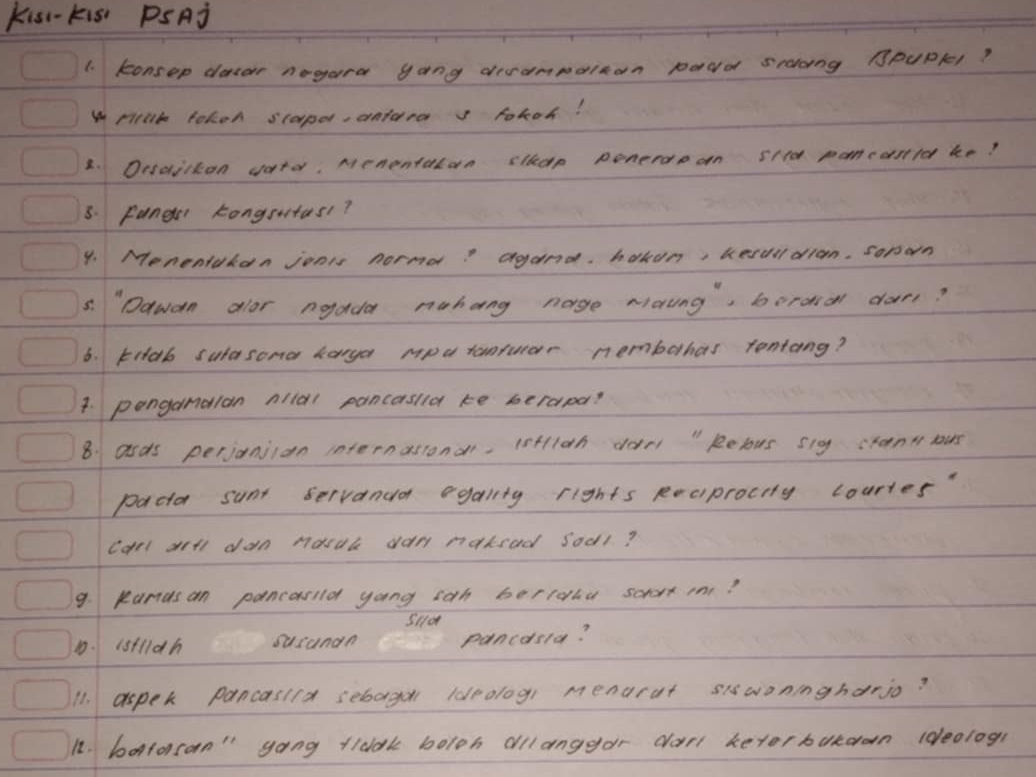 Kisi-Kisi PSAJ
1. Konsep dasar negara yang disampaikan pada sidang BPUPKI ?
Milik tokoh siapa, antara 3 tokoh !
2. Disajikan data, Menentukan sikap penerapan sila pancasila ke ?
3. fungsi kongstitusi ?
4. Menentukan jenis norma ? agama, hukum, kesusilaian, sopan
5. "Dawan alor ngada muhang nage maung", berasal dari ?
6. kitab sutasoma karya mpu tantular membahas tentang ?
7. pengamalan nilai pancasila ke berapa ?
8. asas perjanjian internasional, istilah dari "Rebus sig stanti bus
pacta sunt servanda egality rights Reciprocity Courtes"
cari arti dan masuk dari maksud soal ?
9. Rumusan pancasila yang sah berlaku saat ini ?
10. istilah susunan sila pancasila ?
11. aspek pancasila sebagai ideologi menurut siswoningharjo ?
12. batasan" yang tidak boleh dilanggar dari keterbukaan ideologi